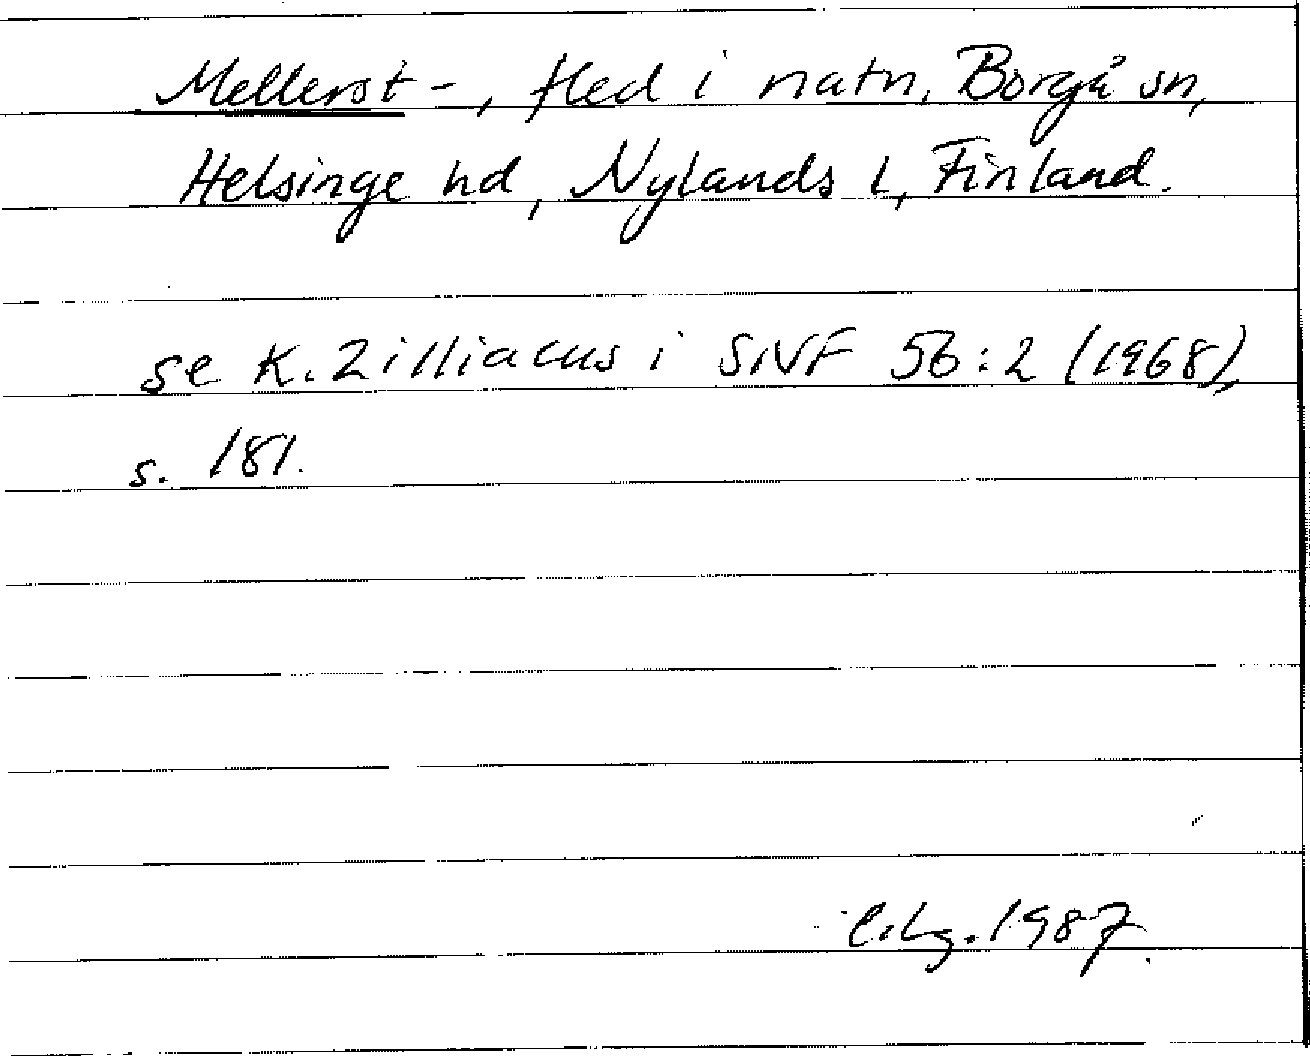 Mellerst-, fled i natn, Borgå sn,
Helsinge hd, Nylands l, Finland.
se K. Zilliacus i SNF 56:2 (1968),
s. 181.
1987.